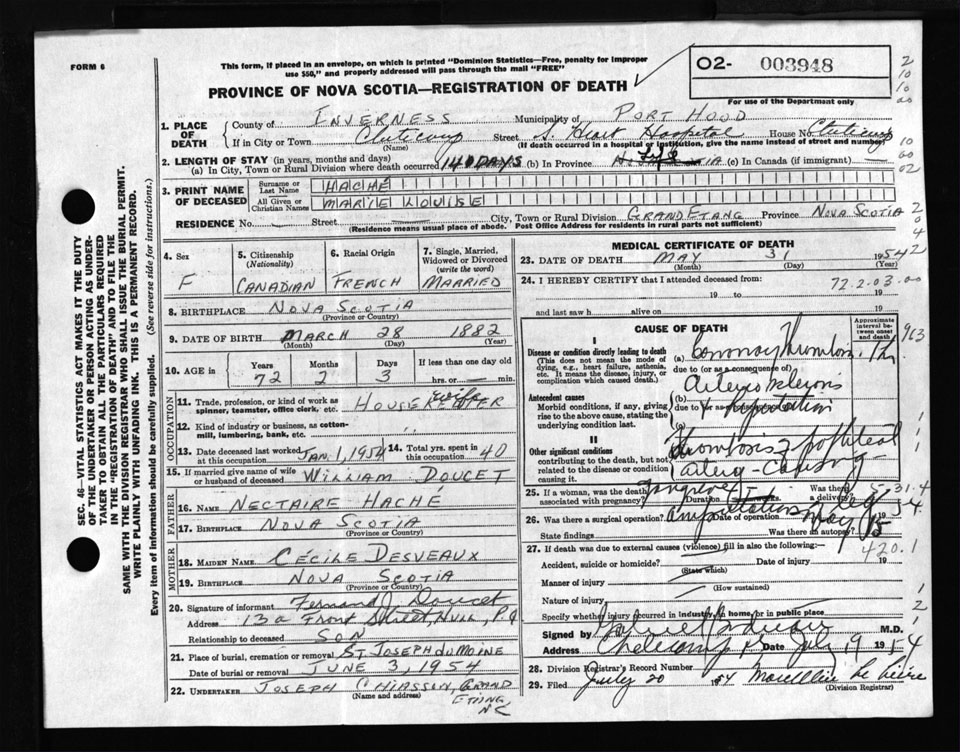 FORM 6
This form, if placed in an envelope, on which is printed "Dominion Statistics—Free, penalty for improper
use $50," and properly addressed will pass through the mail "FREE"
O2- 003948
For use of the Department only
PROVINCE OF NOVA SCOTIA—REGISTRATION OF DEATH
2
10
10
00
10
00
02
2
0
4
2
1. PLACE OF DEATH
County of INVERNESS Municipality of PORT HOOD
If in City or Town Street S. Heart Hospital House No.
(Name) (If death occurred in a hospital or institution, give the name instead of street and number)
2. LENGTH OF STAY (in years, months and days)
(a) In City, Town or Rural Division where death occurred 140 DAYS (b) In Province Life (c) In Canada (if immigrant) —
3. PRINT NAME OF DECEASED
Surname or Last Name HACHE
All Given or Christian Names MARIE LOUISE
RESIDENCE No. Street City, Town or Rural Division GRAND ETANG Province NOVA SCOTIA
(Residence means usual place of abode. Post Office Address for residents in rural parts not sufficient)
4. Sex
F
5. Citizenship
(Nationality)
CANADIAN
6. Racial Origin
FRENCH
7. Single, Married,
Widowed or Divorced
(write the word)
MARRIED
8. BIRTHPLACE NOVA SCOTIA
(Province or Country)
9. DATE OF BIRTH MARCH 28 1882
(Month) (Day) (Year)
10. AGE in
Years Months Days If less than one day old
72 2 3 hrs. or — min.
OCCUPATION
11. Trade, profession, or kind of work as
spinner, teamster, office clerk, etc. HOUSE KEEPER wife
12. Kind of industry or business, as cotton-
mill, lumbering, bank, etc.
13. Date deceased last worked
at this occupation JAN. 1, 1954
14. Total yrs. spent in
this occupation 40
15. If married give name of wife
or husband of deceased WILLIAM DOUCET
FATHER
16. NAME NECTAIRE HACHE
17. BIRTHPLACE NOVA SCOTIA
(Province or Country)
MOTHER
18. MAIDEN NAME CECILE DESVEAUX
19. BIRTHPLACE NOVA SCOTIA
(Province or Country)
20. Signature of informant Fernand J Doucet
Address 13a Front Street, HULL, P.Q
Relationship to deceased SON
21. Place of burial, cremation or removal ST JOSEPH DU MOINE
Date of burial or removal JUNE 3, 1954
22. UNDERTAKER JOSEPH CHIASSON, GRAND
(Name and address)
ETANG
MEDICAL CERTIFICATE OF DEATH
23. DATE OF DEATH MAY 31 1954
(Month) (Day) (Year)
24. I HEREBY CERTIFY that I attended deceased from:
72.2.03.00
19 to 19
and last saw h alive on 19
CAUSE OF DEATH
Approximate
interval be-
tween onset
and death
I
Disease or condition directly leading to death
(This does not mean the mode of
dying, e.g., heart failure, asthenia,
etc. It means the disease, injury, or
complication which caused death.)
(a) Coronary Thrombosis
due to (or as a consequence of)
Antecedent causes
Morbid conditions, if any, giving
rise to the above cause, stating the
underlying condition last.
(b)
due to (or as a consequence of)
(c)
II
Other significant conditions
contributing to the death, but not
related to the disease or condition
causing it.
Thrombosis of popliteal
artery - causing
25. If a woman, was the death
associated with pregnancy? Duration weeks. Was there
a delivery?
gangrene
5-31.4
26. Was there a surgical operation? Amputation Date of operation 1954
State findings Was there an autopsy?
27. If death was due to external causes (violence) fill in also the following:—
420.1
Accident, suicide or homicide? Date of injury 19
(State which)
Manner of injury
(How sustained)
Nature of injury
Specify whether injury occurred in industry, in home, or in public place
Signed by M.D.
Address Cheticamp Date July 19 1954
28. Division Registrar's Record Number
29. Filed July 20 1954
(Division Registrar)
SEC. 46—VITAL STATISTICS ACT MAKES IT THE DUTY
OF THE UNDERTAKER OR PERSON ACTING AS UNDER-
TAKER TO OBTAIN ALL THE PARTICULARS REQUIRED
IN THE "REGISTRATION OF DEATH" AND TO FILE THE
SAME WITH THE DIVISION REGISTRAR WHO SHALL ISSUE THE BURIAL PERMIT.
WRITE PLAINLY WITH UNFADING INK. THIS IS A PERMANENT RECORD.
Every item of information should be carefully supplied. (See reverse side for instructions.)